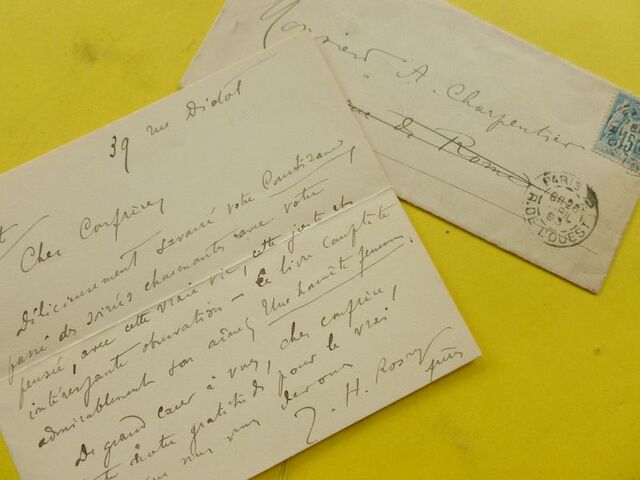 39 rue Didot
Cher Confrère,
Délicieusement savouré votre Courtisane,
passé des soirées charmantes avec votre
pensée, avec cette vraie vie, cette juste et
intéressante observation – Ce livre complète
admirablement son aîné, Une honnête femme.
De grand cœur à vous, cher confrère,
notre gratitude pour le vrai
que nous vous devons
J. H. Rosny
frères
Monsieur A. Charpentier
rue de Rome
15
PARIS
R. DE L'OUEST